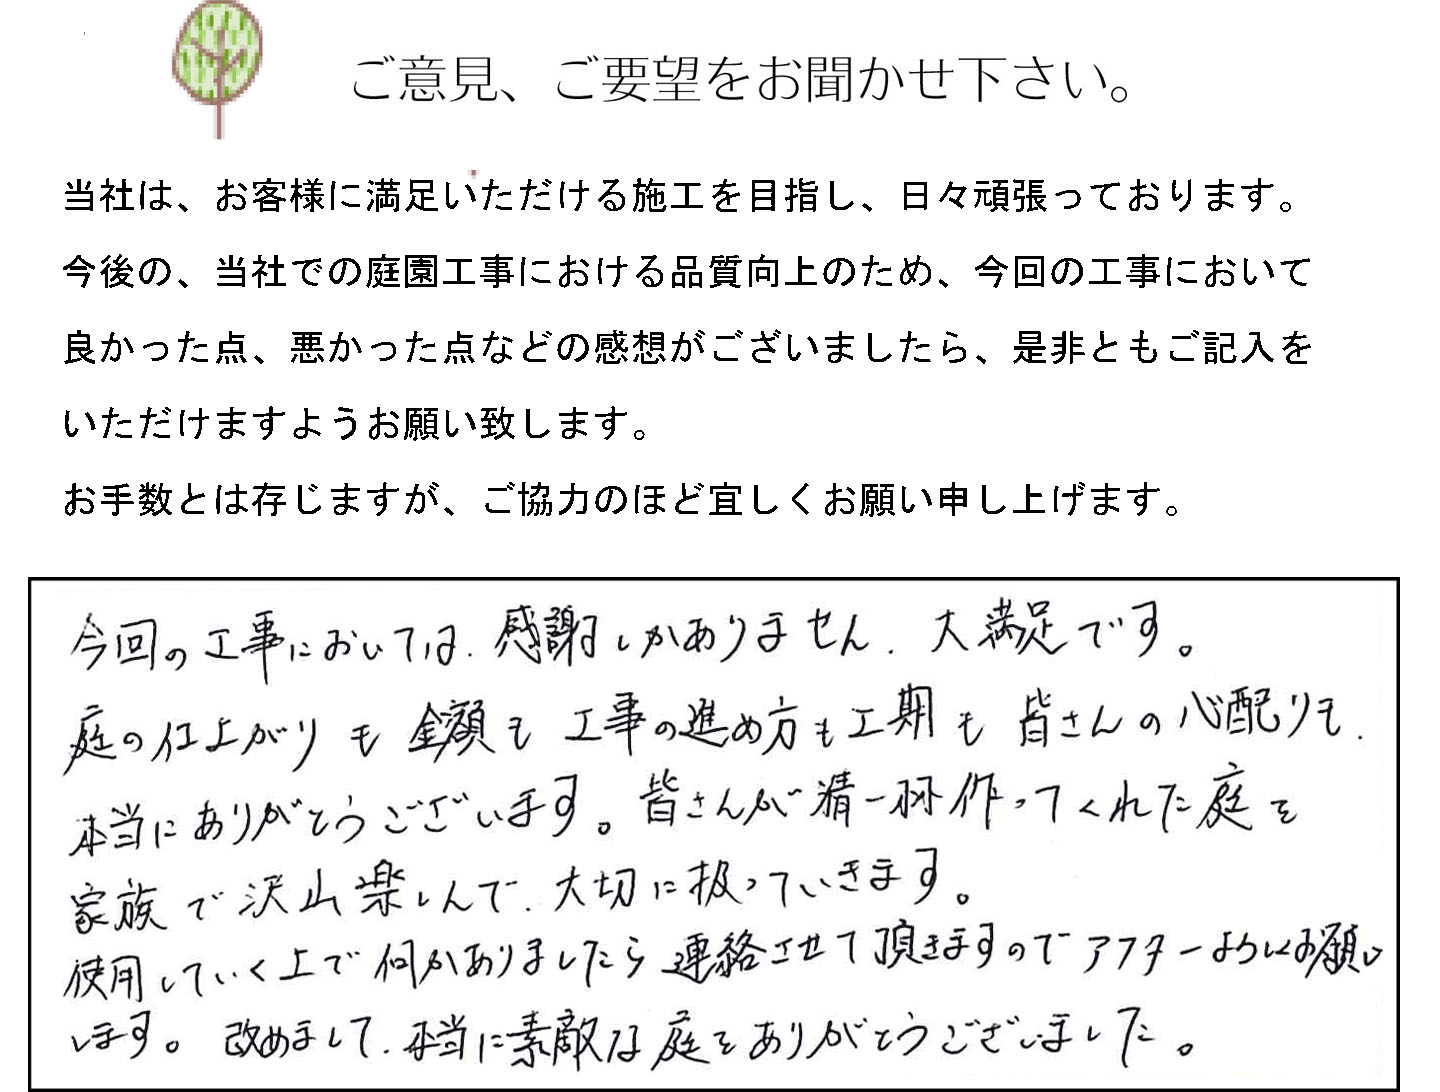 ご意見、ご要望をお聞かせ下さい。
当社は、お客様に満足いただける施工を目指し、日々頑張っております。
今後の、当社での庭園工事における品質向上のため、今回の工事において
良かった点、悪かった点などの感想がございましたら、是非ともご記入を
いただけますようお願い致します。
お手数とは存じますが、ご協力のほど宜しくお願い申し上げます。
今回の工事においては、感謝しかありません、大満足です。
庭の仕上がりも金額も工事の進め方も工期も皆さんの心配りも、
本当にありがとうございます。皆さんが精一杯作ってくれた庭を
家族で沢山楽しんで、大切に扱っていきます。
使用していく上で何かありましたら連絡させて頂きますのでアフターよろしくお願い
します。改めまして、本当に素敵な庭をありがとうございました。